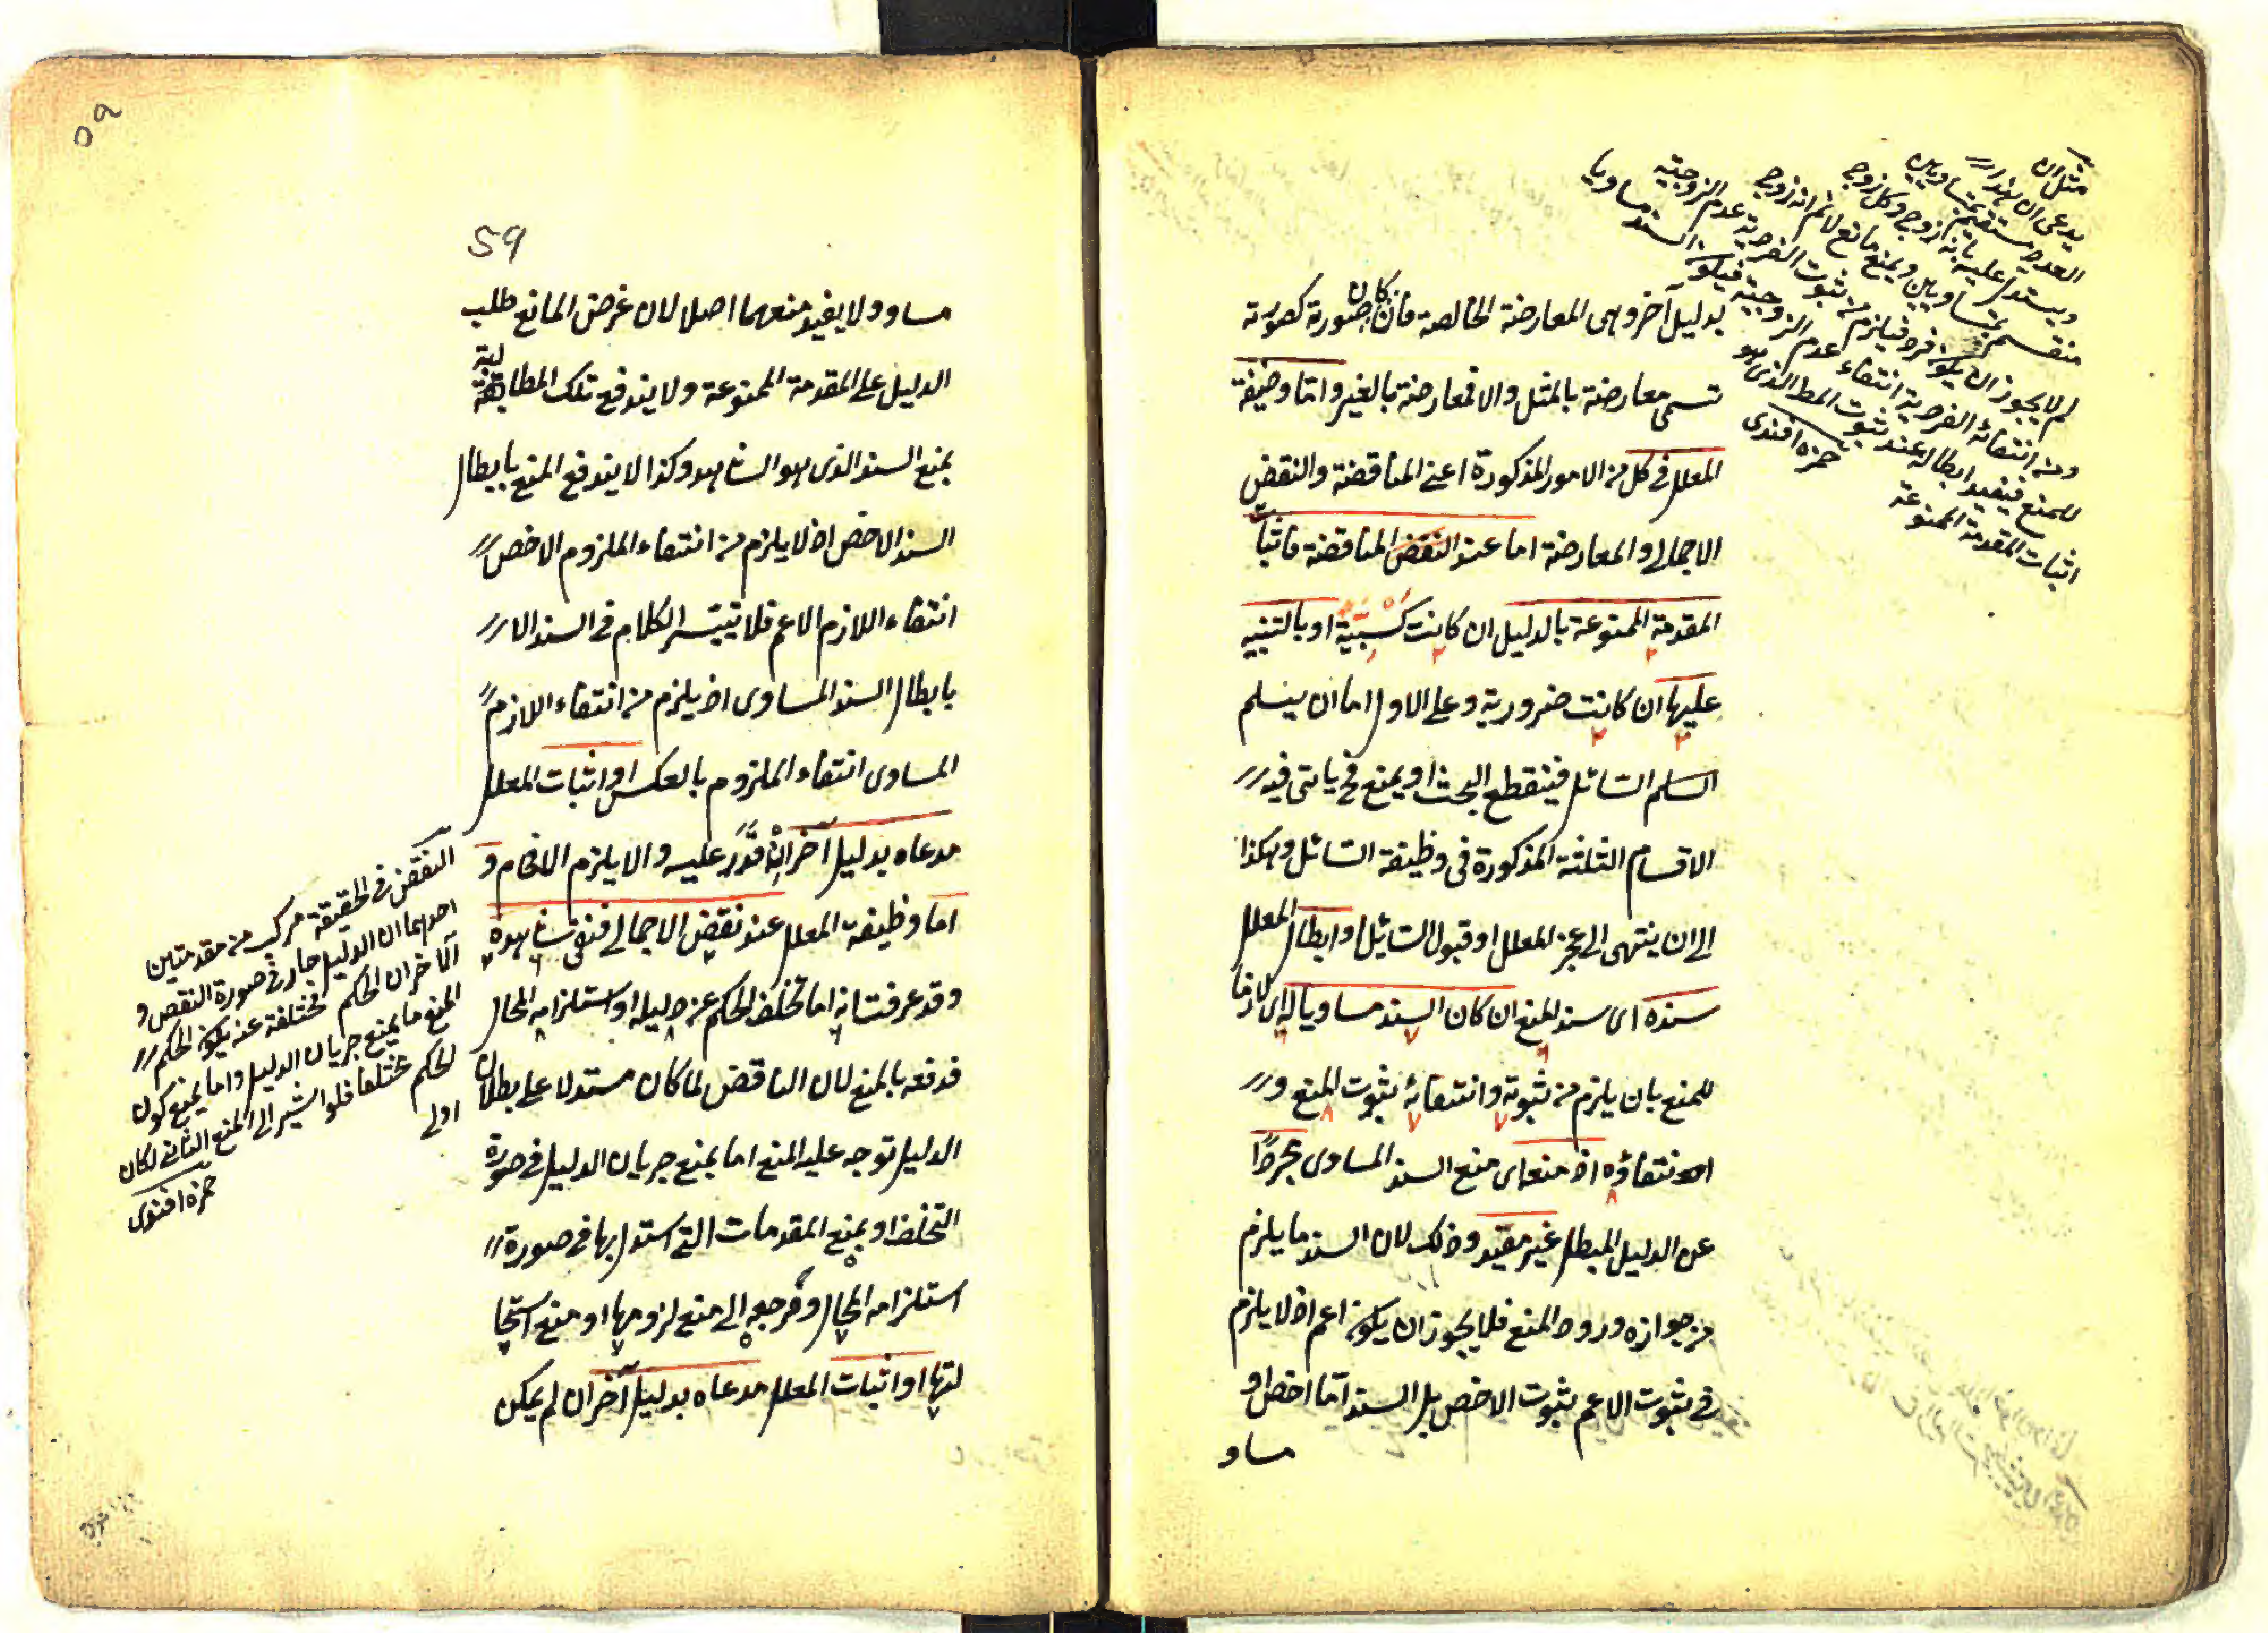 مثل ان
يدعى ان هذا
العدد منقسم بمتساويين
ويستدل عليه بانه زوج وكل زوج
منقسم بمتساويين ويمنع مانع لا نم انه زوج
لم لا يجوز ان يكون فردا فيلزم من ثبوت الفردية عدم الزوجية
ومن انتفائه الفردية انتفاء عدم الزوجية فيكون السند مساويا
للمنع فيفيد ابطاله عند ثبوت المط الذى هو
اثبات المقدمة الممنوعة
حمزه افندى
بدليل آخر وهى المعارضة الخالصة فان كان صورته كصورته
تسمى معارضة بالمثل والا فمعارضة بالغير واما وظيفة
المعلل فى كل من الامور المذكورة اعنى المناقضة والنقض
الاجمالى والمعارضة اما عند النقض المناقضة فاثبات
المقدمة الممنوعة بالدليل ان كانت كسبية او بالتنبيه
عليها ان كانت ضرورية وعلى الاول اما ان يسلم
السلم السائل فينقطع البحث او يمنع فح ياتى فيه
الاقسام الثلثة المذكورة فى وظيفة السائل وهكذا
الى ان ينتهى الى عجز المعلل او قبول السائل او ابطال المعلل
سنده اى سند المنع ان كان السند مساويا له اى لازما
للمنع بان يلزم من ثبوته وانتفائه ثبوت المنع و
انتفاؤه اذ منعه اى منع السند المساوى مجردا
عن الدليل المبطل غير مفيد وذلك لان السند ما يلزم
من جوازه ورود المنع فلا يجوز ان يكون اعم اذ لا يلزم
فى ثبوت الاعم ثبوت الاخص بل السند اما اخص او
مساو
٥٩
59
مساو ولا يفيد منعهما اصلا لان غرض المانع طلب
الدليل على المقدمة الممنوعة ولا يندفع تلك المطالبة
بمنع السند الذى هو الشاهد وكذا لا يندفع المنع بابطال
السند الاخص اذ لا يلزم من انتفاء الملزوم الاخص
انتفاء اللازم الاعم فلا تيسر الكلام فى السند الا
بابطال السند المساوى اذ يلزم من انتفاء اللازم
المساوى انتفاء الملزوم بالعكس او اثبات المعلل
مدعاه بدليل آخر ان قدر عليه والا يلزم الافحام و
اما وظيفة المعلل عند نقض الاجمالى فنفى شاهده
وقد عرفت انه اما تخلف الحكم عن دليله او استلزامه المحال
فدفعه بالمنع لان الناقض لما كان مستدلا على بطلان
الدليل توجه عليه المنع اما بمنع جريان الدليل فى صورة
التخلف او بمنع المقدمات التى استدل بها فى صورة
استلزامه المحال ومرجعه الى منع لزومها او منع استحا
لتها او اثبات المعلل مدعاه بدليل آخر ان لم يمكن
النقض فى الحقيقة مركب من مقدمتين
احديهما ان الدليل جار فى صورة النقض و
الآخر ان الحكم مختلفة عنه يكون الحكم
المنع ما يمنع جريان الدليل واما يمنع كون
الحكم مختلفا فلو اشير الى المنع الثانى لكان
اولى
حمزه افندى